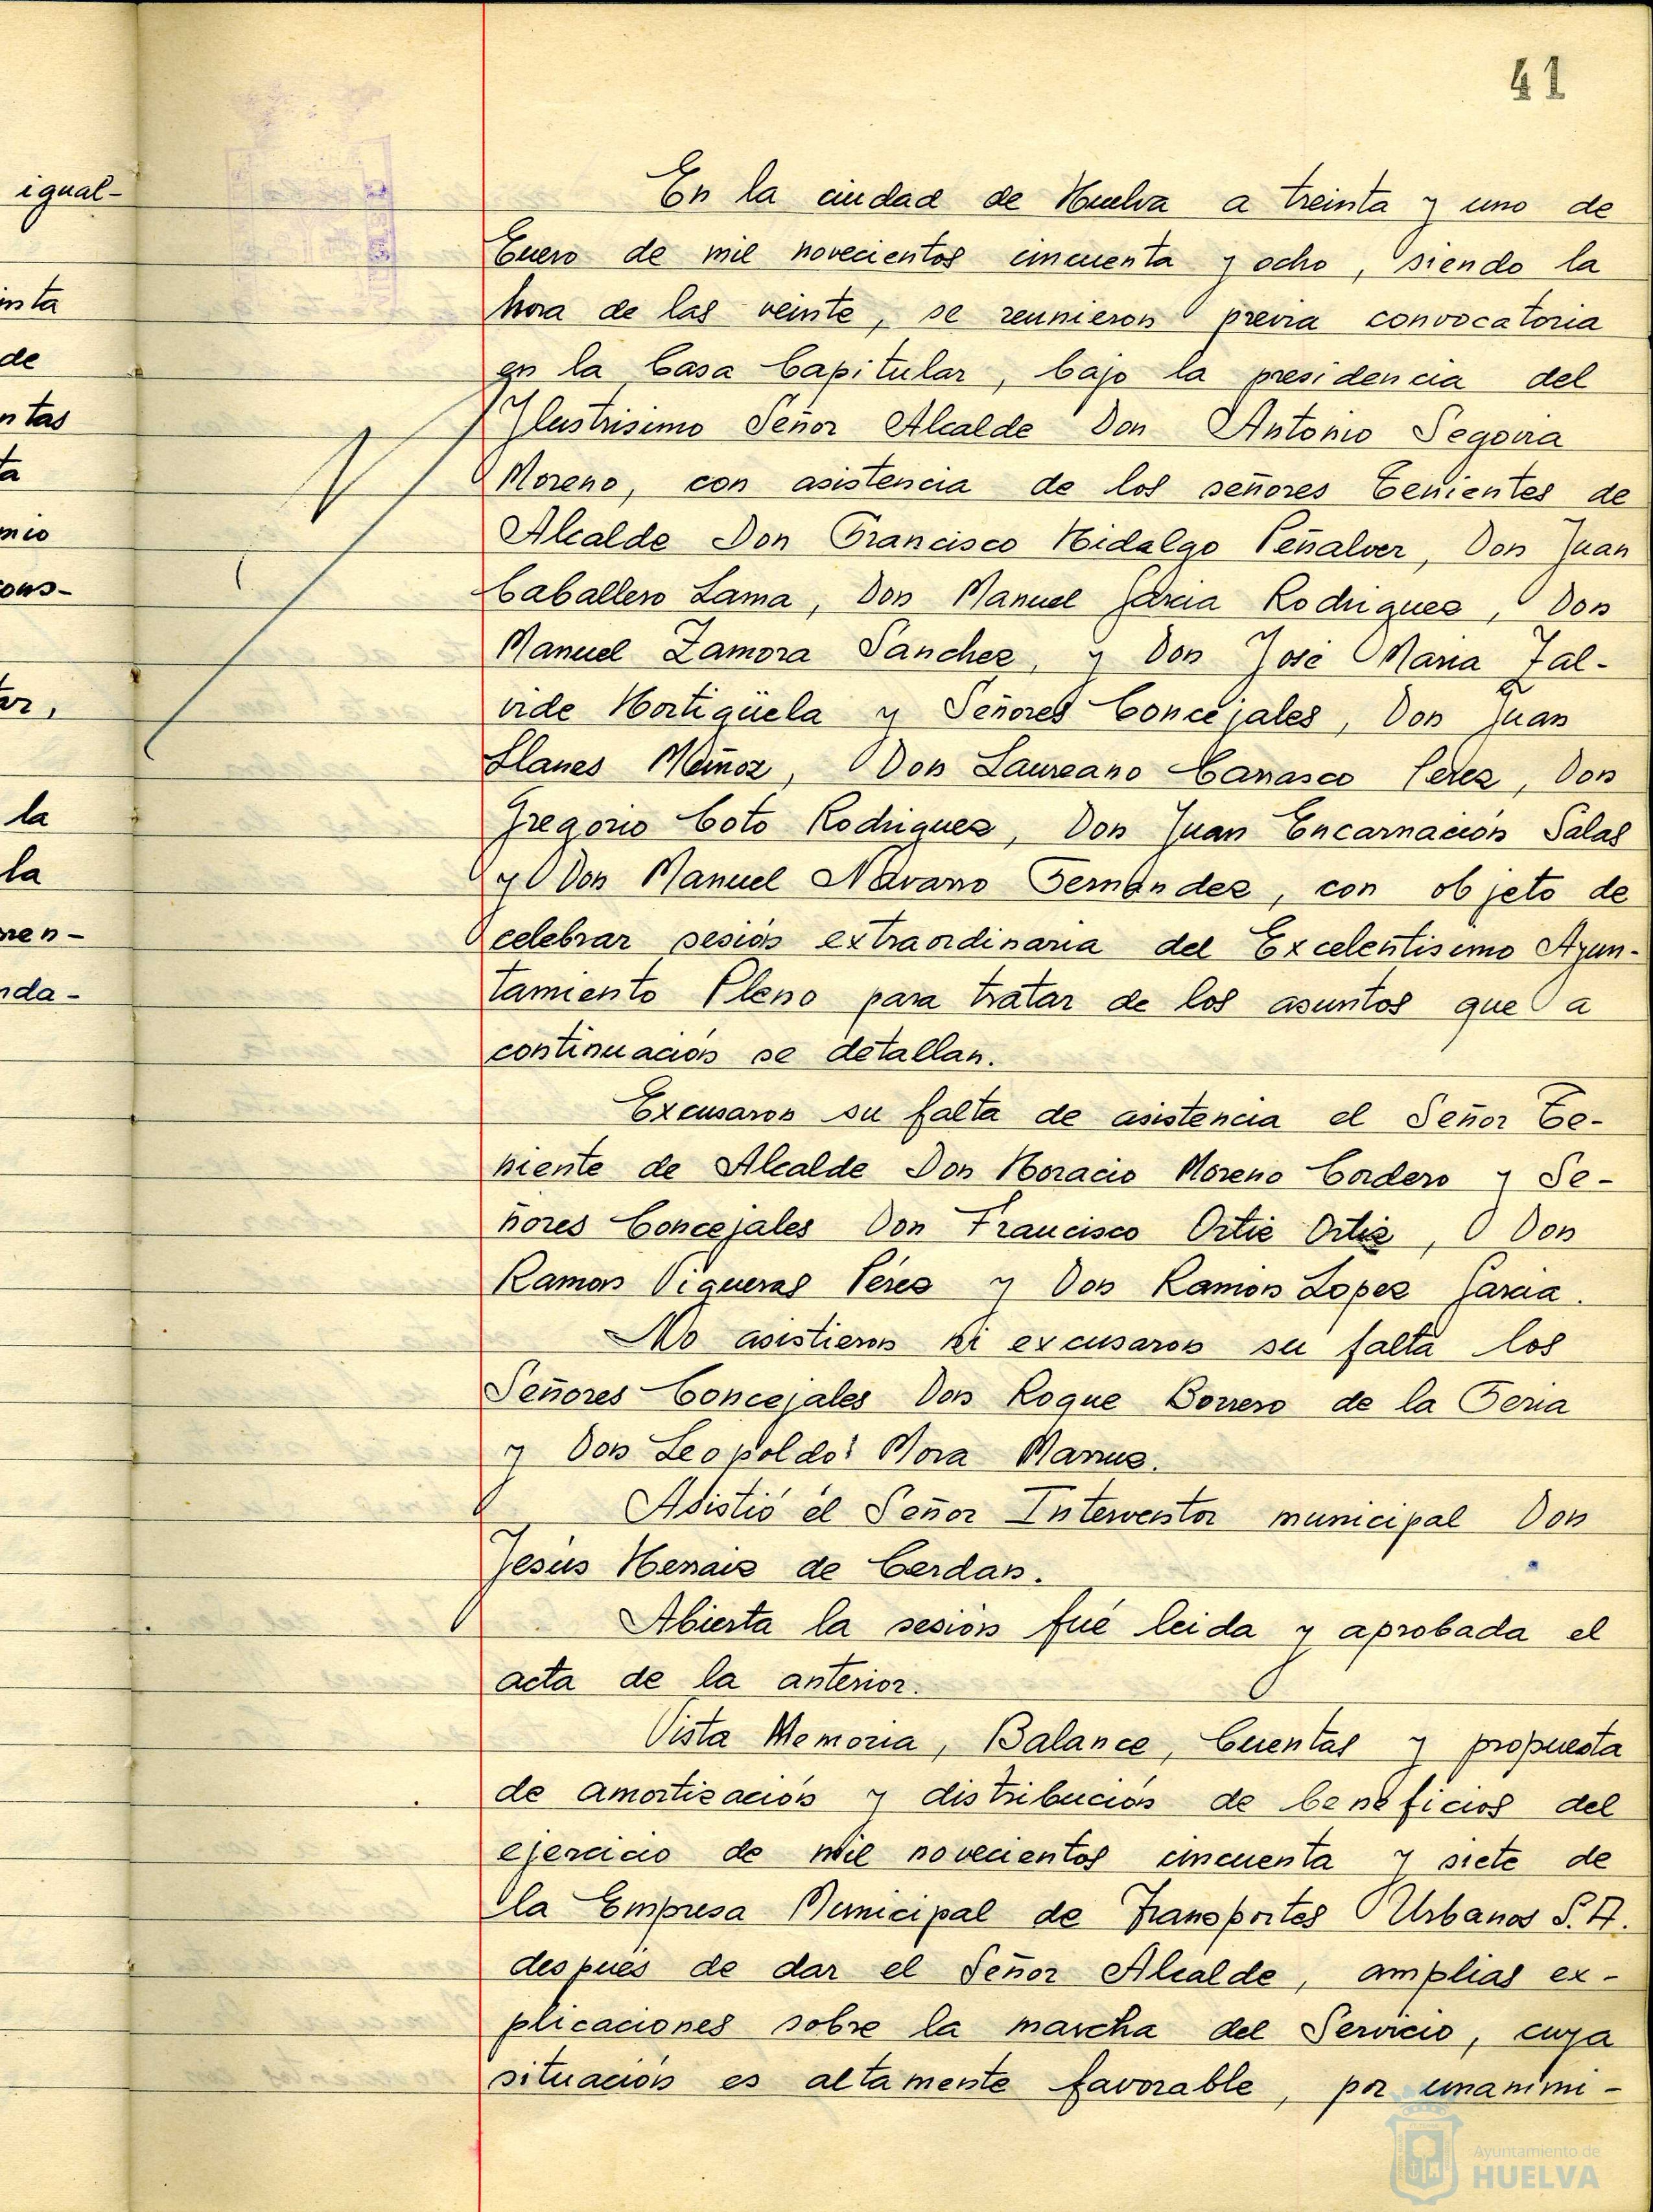 41
igual-
de
la
la
En la ciudad de Huelva a treinta y uno de
Enero de mil novecientos cincuenta y ocho, siendo la
hora de las veinte, se reunieron previa convocatoria
en la Casa Capitular, bajo la presidencia del
Ilustrisimo Señor Alcalde Don Antonio Segovia
Moreno, con asistencia de los señores Tenientes de
Alcalde Don Francisco Hidalgo Peñalver, Don Juan
Caballero Lama, Don Manuel Garcia Rodriguez, Don
Manuel Zamora Sanchez, y Don José Maria Zal-
vide Hortigüela y Señores Concejales, Don Juan
Llanes Muñoz, Don Laureano Carrasco Perez, Don
Gregorio Coto Rodriguez, Don Juan Encarnación Salas
y Don Manuel Navarro Fernández, con objeto de
celebrar sesión extraordinaria del Excelentisimo Ayun-
tamiento Pleno para tratar de los asuntos que a
continuación se detallan.
Excusaron su falta de asistencia el Señor Te-
niente de Alcalde Don Horacio Moreno Cordero y Se-
ñores Concejales Don Francisco Ortiz Ortiz, Don
Ramon Vigueras Pérez y Don Ramón Lopez Garcia.
No asistieron ni excusaron su falta los
Señores Concejales Don Roque Borrero de la Feria
y Don Leopoldo Mora
Asistió el Señor Interventor municipal Don
Jesús de Cerdan.
Abierta la sesión fué leida y aprobada el
acta de la anterior.
Vista Memoria, Balance, Cuentas y propuesta
de amortización y distribución de beneficios del
ejercicio de mil novecientos cincuenta y siete de
la Empresa Municipal de Transportes Urbanos S.A.
después de dar el Señor Alcalde, amplias ex-
plicaciones sobre la marcha del Servicio, cuya
situación es altamente favorable, por unanimi-
Ayuntamiento de
HUELVA